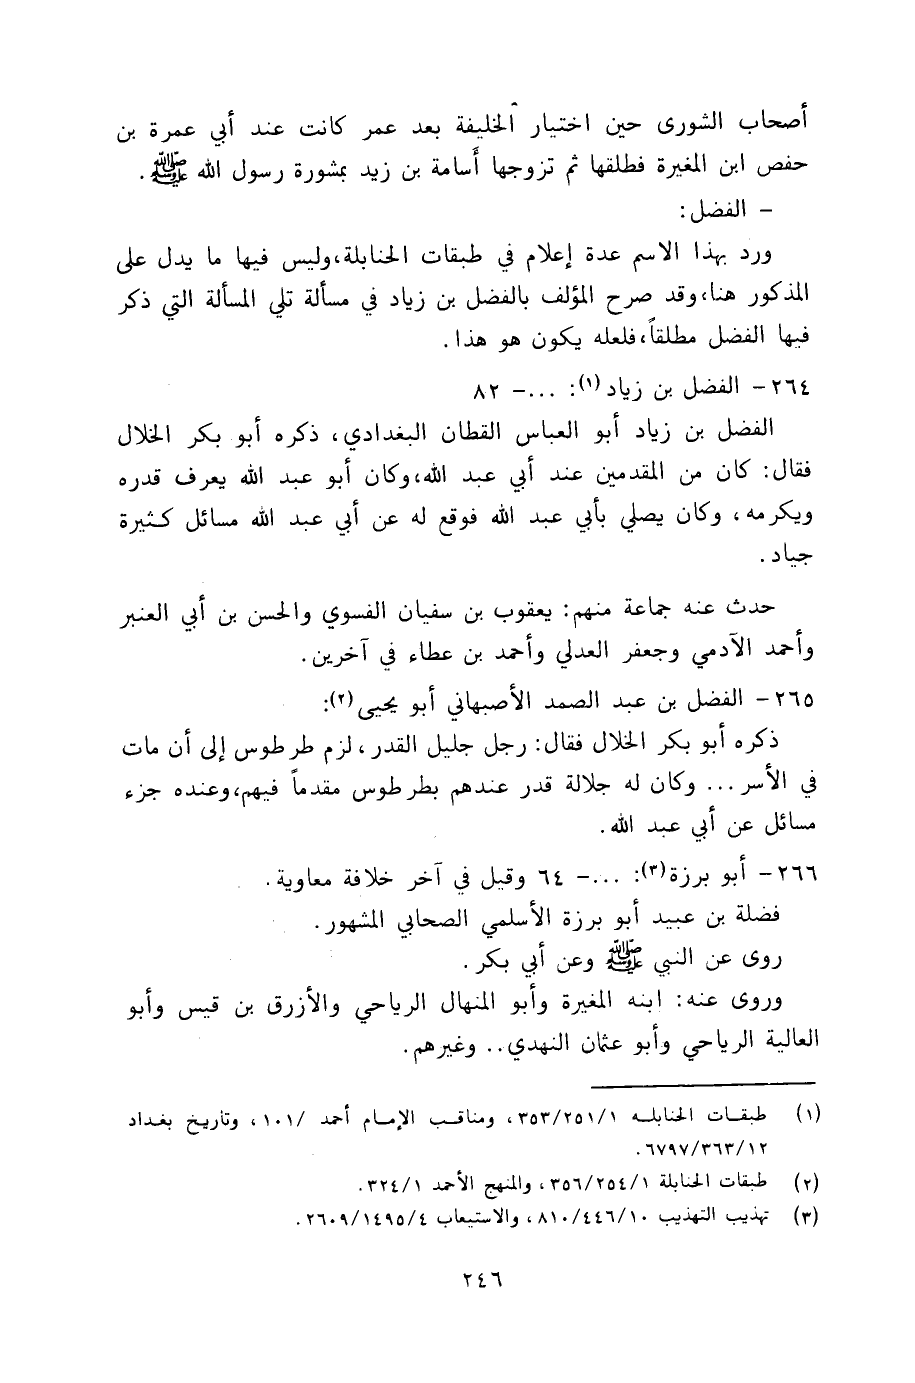 أصحاب الشورى حين اختيار الخليفة بعد عمر كانت عند أبي عمرة بن
حفص ابن المغيرة فطلقها ثم تزوجها أسامة بن زيد بمشورة رسول الله ﷺ.
– الفضل:
ورد بهذا الاسم عدة إعلام في طبقات الحنابلة،وليس فيها ما يدل على
المذكور هنا،وقد صرح المؤلف بالفضل بن زياد في مسألة تلي المسألة التي ذكر
فيها الفضل مطلقاً،فلعله يكون هو هذا.
٢٦٤ – الفضل بن زياد(١): ...– ٨٢
الفضل بن زياد أبو العباس القطان البغدادي، ذكره أبو بكر الخلال
فقال: كان من المقدمين عند أبي عبد الله،وكان أبو عبد الله يعرف قدره
ويكرمه، وكان يصلي بأبي عبد الله فوقع له عن أبي عبد الله مسائل كثيرة
جياد.
حدث عنه جماعة منهم: يعقوب بن سفيان الفسوي والحسن بن أبي العنبر
وأحمد الآدمي وجعفر العدلي وأحمد بن عطاء في آخرين.
٢٦٥ – الفضل بن عبد الصمد الأصبهاني أبو يحيى(٢):
ذكره أبو بكر الخلال فقال: رجل جليل القدر، لزم طرطوس إلى أن مات
في الأسر... وكان له جلالة قدر عندهم بطرطوس مقدماً فيهم،وعنده جزء
مسائل عن أبي عبد الله.
٢٦٦ – أبو برزة(٣): ...– ٦٤ وقيل في آخر خلافة معاوية.
فضلة بن عبيد أبو برزة الأسلمي الصحابي المشهور.
روى عن النبي ﷺ وعن أبي بكر.
وروى عنه: ابنه المغيرة وأبو المنهال الرياحي والأزرق بن قيس وأبو
العالية الرياحي وأبو عثمان النهدي.. وغيرهم.
(١) طبقات الحنابله ٣٥٣/٢٥١/١، ومناقب الإمام أحمد /١٠١، وتأريخ بغداد
٦٧٩٧/٣٦٣/١٢.
(٢) طبقات الحنابلة ٣٥٦/٢٥٤/١، والمنهج الأحمد ٣٢٤/١.
(٣) تهذيب التهذيب ٨١٠/٤٤٦/١٠، والاستيعاب ٢٦٠٩/١٤٩٥/٤.
٢٤٦